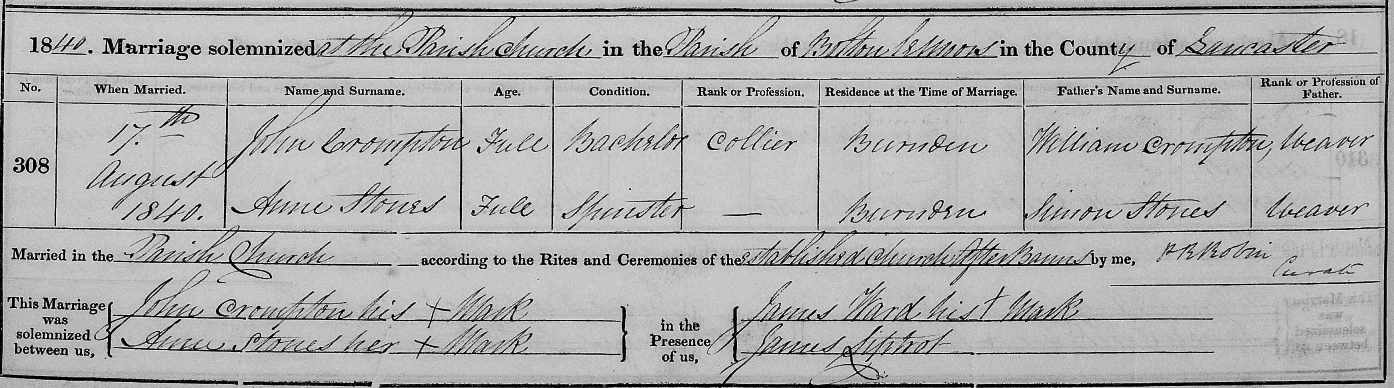 1840. Marriage solemnized at the Parish Church in the Parish of Bolton le Moors in the County of Lancaster
No. When Married. Name and Surname. Age. Condition. Rank or Profession. Residence at the Time of Marriage. Father's Name and Surname. Rank or Profession of Father.
308 17.th August 1840. John Crompton Full Bachelor Collier Burnden William Crompton, Weaver
Anne Stones Full Spinster — Burnden Simon Stones Weaver
Married in the Parish Church according to the Rites and Ceremonies of the established church After Banns by me, P R Robin Curate
This Marriage was solemnized between us, John Crompton his + Mark in the Presence of us, James Ward his + Mark
Anne Stones her + Mark James